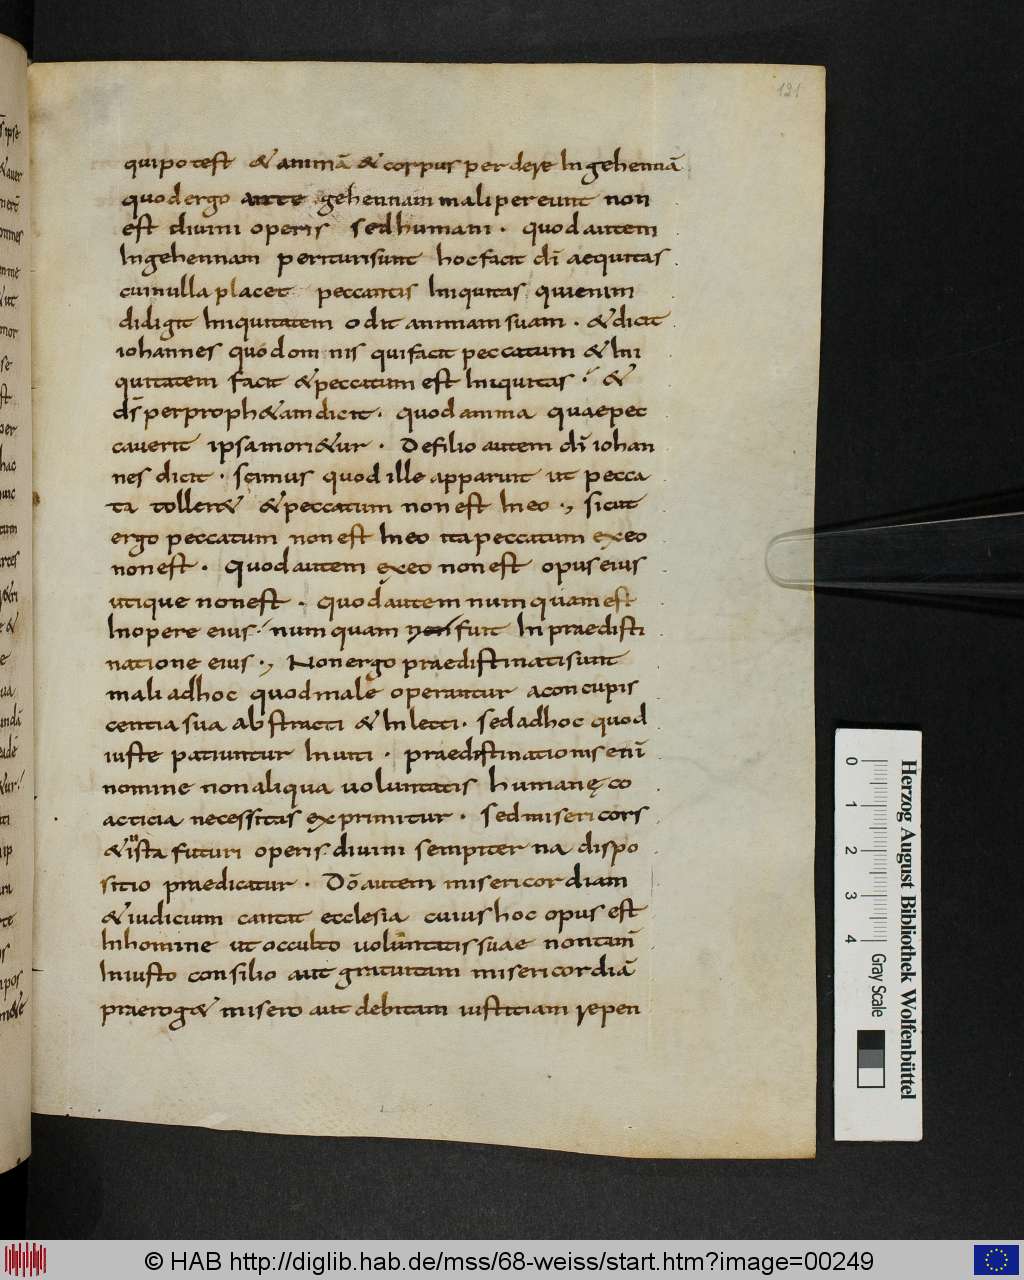 121
qui potest & animā & corpus perdere In gehennā
quod ergo ante gehennam mali pereunt non
est diuini operis sed humani . quod autem
In gehennam perituri sunt hoc facit dī aequitas
cui nulla placet peccantis Iniquitas quienim
didigit Iniquitatem odit animam suam . & dicit
iohannes quod omnis qui facit peccatum & Ini
quitatem facit & peccatum est Iniquitas . &
ds̄ per proph&am dicit . quod anima quae pec
cauerit ipsa mori&ur . De filio autem dī iohan
nes dicit . scimus quod ille apparuit ut pecca
ta toller& & peccatum non est In eo ., sicut
ergo peccatum non est In eo ita peccatum ex eo
non est . Quod autem ex eo non est opus eius
utique non est . quod autem num quam est
In opere eius . num quam non fuit In praedisti
natione eius ., Non ergo praedistinati sunt
mali ad hoc quod male operantur a concupis
centia sua abstracti & Inlecti . sed ad hoc quod
iuste patiuntur Inuiti . praedistinationis enī
nomine non aliqua uoluntatis humanę co
acticia necessitas exprimitur . sed misericors
& iusta futuri operis diuini sempiterna dispo
sitio praedicatur . Dō autem misericordiam
& iudicium cantat ecclesia cuius hoc opus est
In homine ut occulto uoluntatis suae non tam̄
Iniusto consilio aut gratuitam misericordiā
praerog& misero aut debitam iustitiam repen
Herzog August Bibliothek Wolfenbüttel
0 1 2 3 4 Gray Scale
© HAB http://diglib.hab.de/mss/68-weiss/start.htm?image=00249